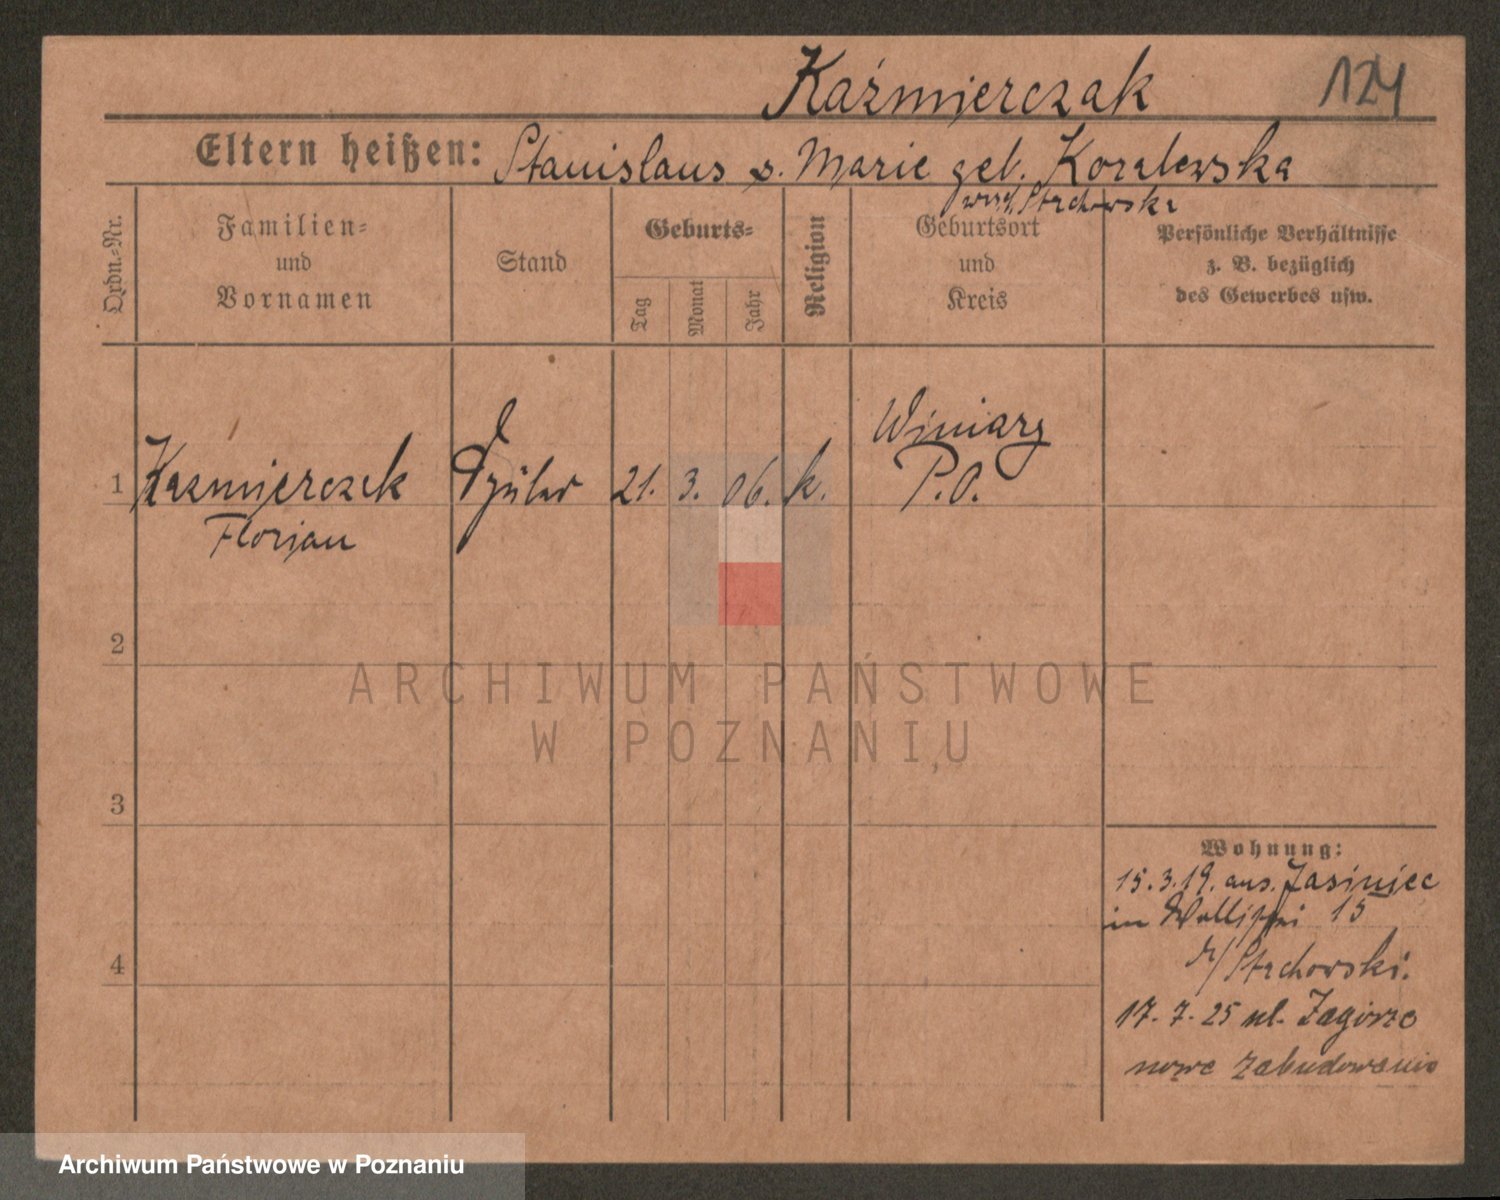 Kaźmierczak
124
Eltern heißen: Stanislaus u. Marie geb. Koralewska
Stachowska
Ordn.-Nr.
Familien-
und
Vornamen
Stand
Geburts-
Tag
Monat
Jahr
Religion
Geburtsort
und
Kreis
Persönliche Verhältnisse
z. B. bezüglich
des Gewerbes usw.
1 Kazmierczak Schüler 21. 3. 06. k. Winiary
P.O.
Florjan
2
3
4
Wohnung:
15.3.19. aus. Jasiniec
in Wallischei 15
b/ Stachowski.
17.7.25 ul. Zagórze
nowe zabudowanie
ARCHIWUM PAŃSTWOWE
W POZNANIU
Archiwum Państwowe w Poznaniu